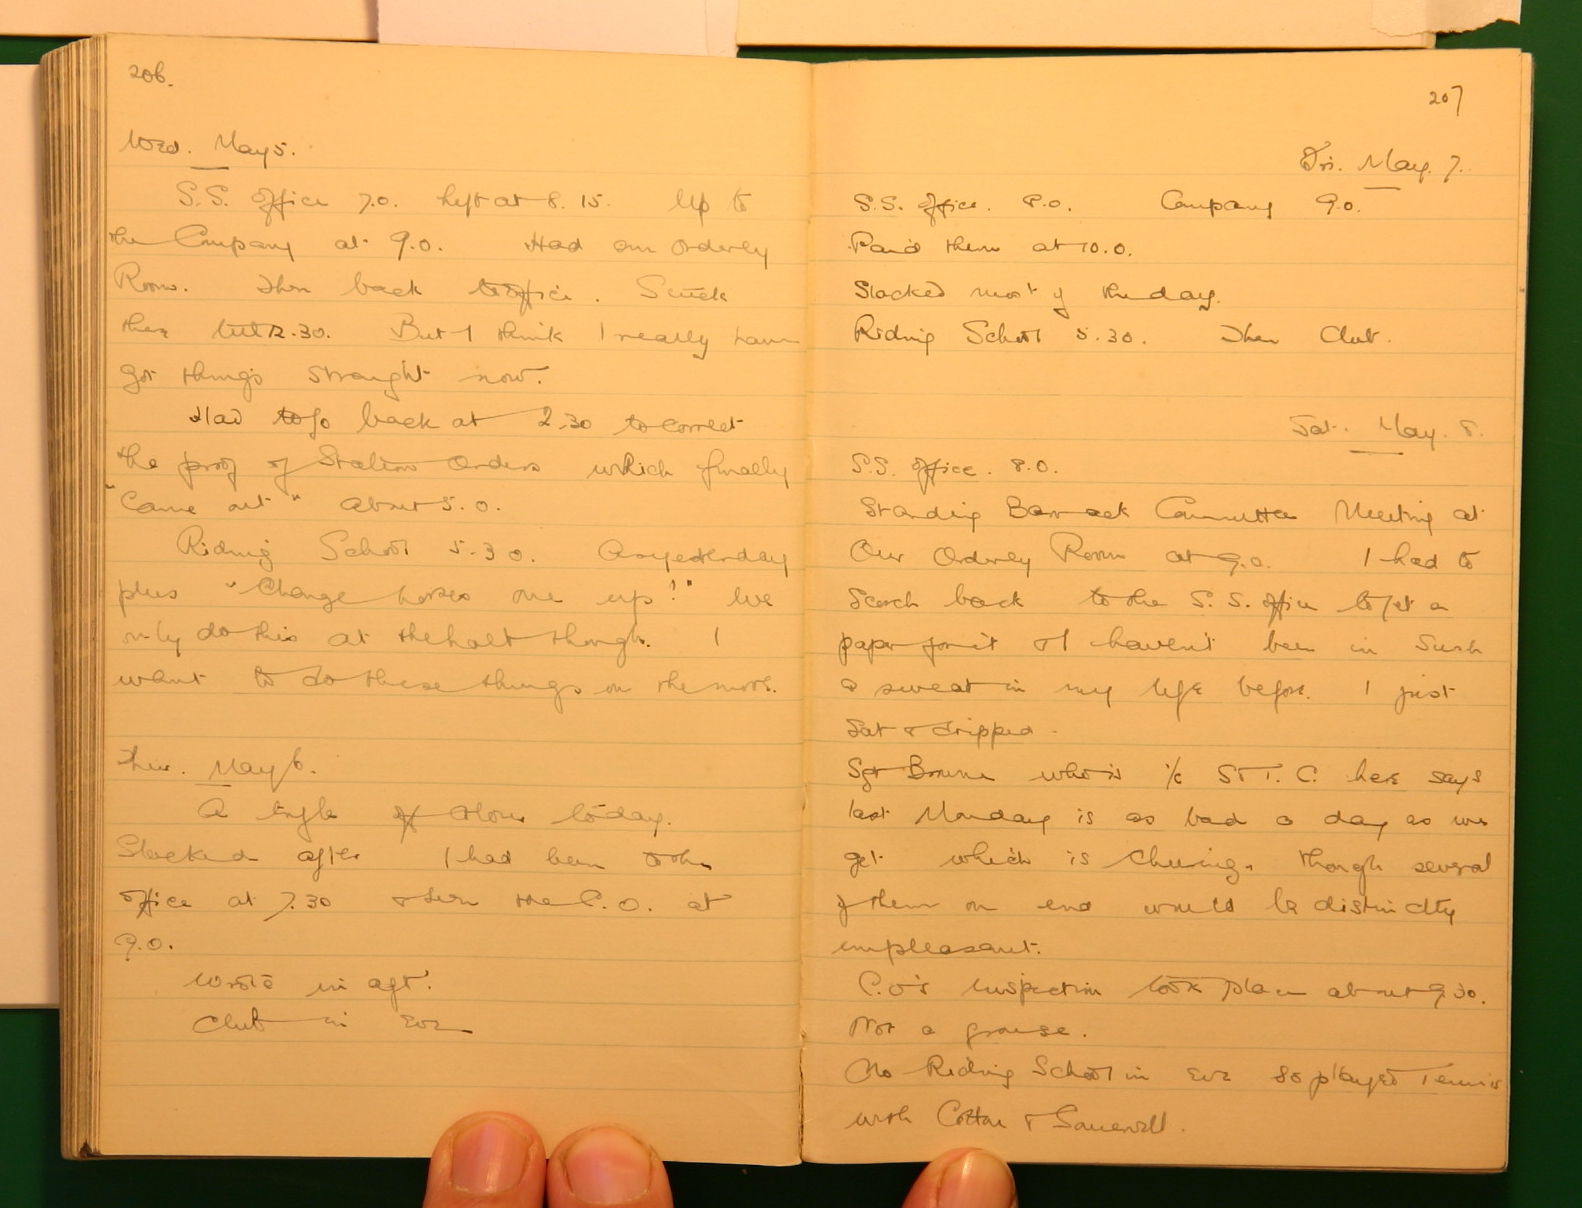 206.
Wed. May 5.
S.S. office 7.0. Left at 8.15. Up to
the Company at 9.0. Had an Orderly
Room. Then back to office. Stuck
there till 12.30. But I think I really have
got things straight now.
Had to go back at 2.30 to correct
the proof of Station Orders which finally
"Came out" about 5.0.
Riding School 5.30. As yesterday
plus "Change horses one up!" We
only do this at the halt though. I
want to do these things on the move.
Thur. May 6.
A trifle off colour today.
Slacked after I had been to the
office at 7.30 & seen the C.O. at
9.0.
Wrote in aft.
Club in Eve
207
Fri. May 7.
S.S. office. 8.0. Company 9.0.
Paid them at 10.0.
Slacked most of the day.
Riding School 5.30. Then Club.
Sat. May. 8.
S.S. office. 8.0.
Standing Barrack Committee Meeting at
Our Orderly Room at 9.0. I had to
Scorch back to the S.S. office to get a
paper for it & I haven't been in such
a sweat in my life before. I just
Sat & dripped.
Sgt Browne who is i/c S & T. C. here says
last Monday is as bad a day as we
get which is cheering, though several
of them on end would be distinctly
unpleasant.
C.O's inspection took place about 9.30.
Not a grouse.
No Riding School in Eve so played Tennis
with Cotton &